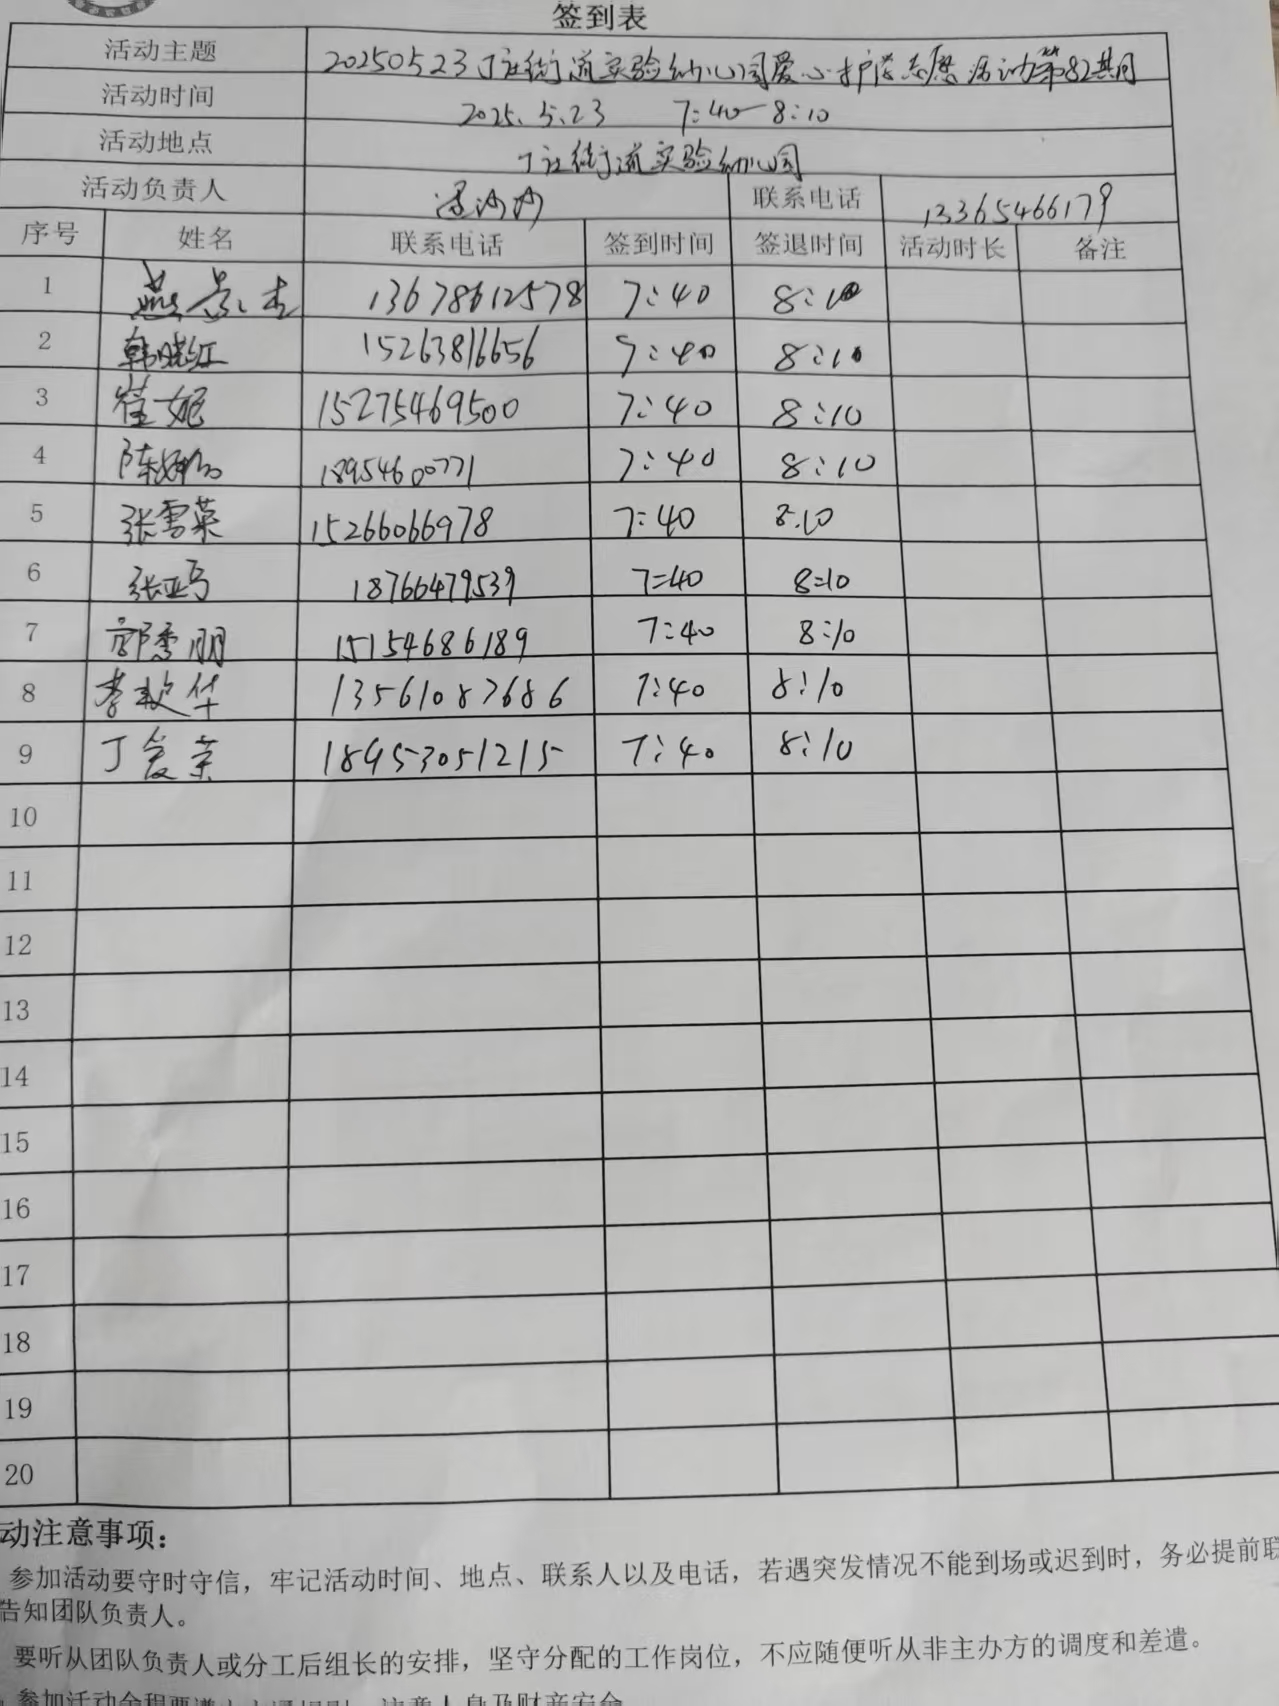 签到表
活动主题 20250523丁庄街道实验幼儿园爱心护学志愿活动第82期
活动时间 2025.5.23 7:40-8:10
活动地点 丁庄街道实验幼儿园
活动负责人 联系电话 13365466179
序号 姓名 联系电话 签到时间 签退时间 活动时长 备注
1 燕景杰 13678612578 7:40 8:10
2 韩晓红 15263816656 7:40 8:10
3 崔妮 15275469500 7:40 8:10
4 陈 18954600771 7:40 8:10
5 张雪菜 15266066978 7:40 8:10
6 张亚 18766479539 7=40 8=10
7 郭秀朋 15154686189 7:40 8:10
8 李 华 13561087686 7:40 8:10
9 丁爱荣 18953051215 7:40 8:10
10
11
12
13
14
15
16
17
18
19
20
动注意事项：
参加活动要守时守信，牢记活动时间、地点、联系人以及电话，若遇突发情况不能到场或迟到时，务必提前联
告知团队负责人。
要听从团队负责人或分工后组长的安排，坚守分配的工作岗位，不应随便听从非主办方的调度和差遣。
参加活动全程要遵